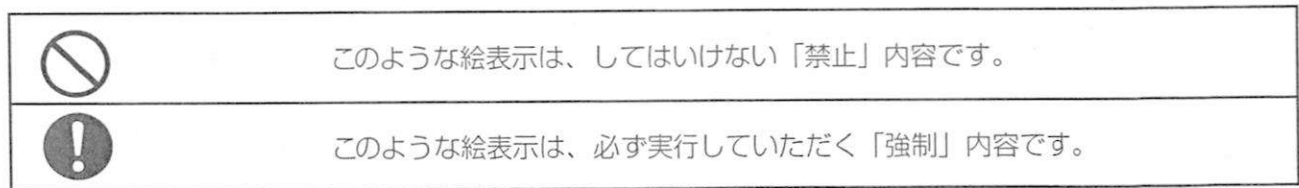 このような絵表示は、してはいけない「禁止」内容です。
このような絵表示は、必ず実行していただく「強制」内容です。